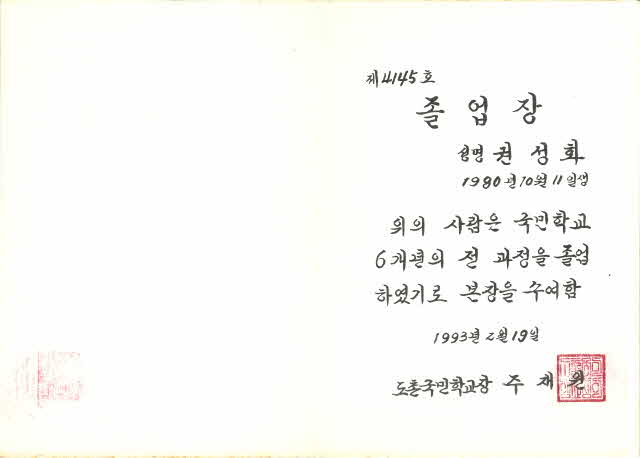 제4145호
졸업장
성명 권성화
1980년 10월 11일생
위의 사람은 국민학교
6개년의 전 과정을 졸업
하였기로 본장을 수여함
1993년 2월 19일
도촌국민학교장 주재원